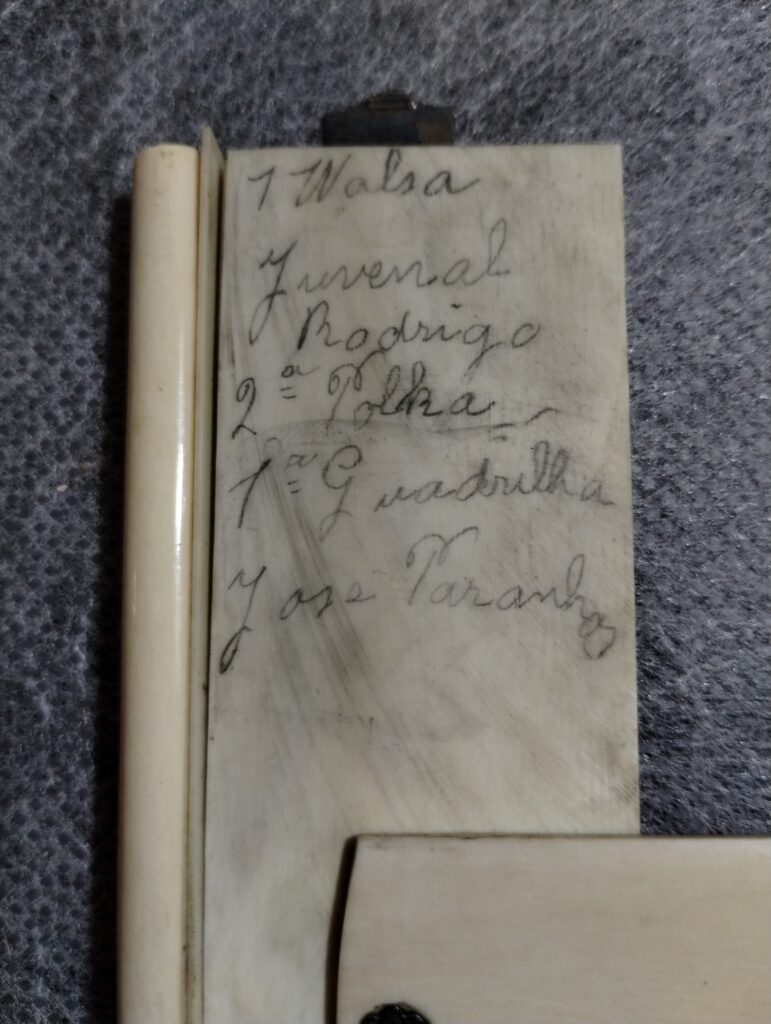 1 Walsa
Juvenal
Rodrigo
2ª Polka
1ª Quadrilha
José Paranhos